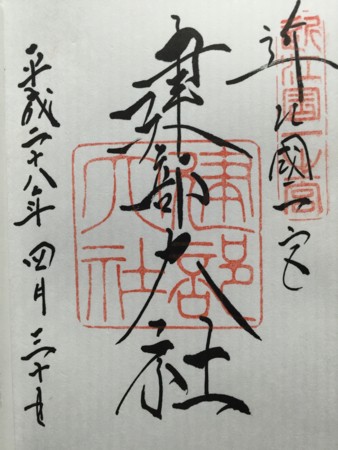 近江國一宮
建部大社
平成二十八年四月三十日
近江國一之宮
建部大社